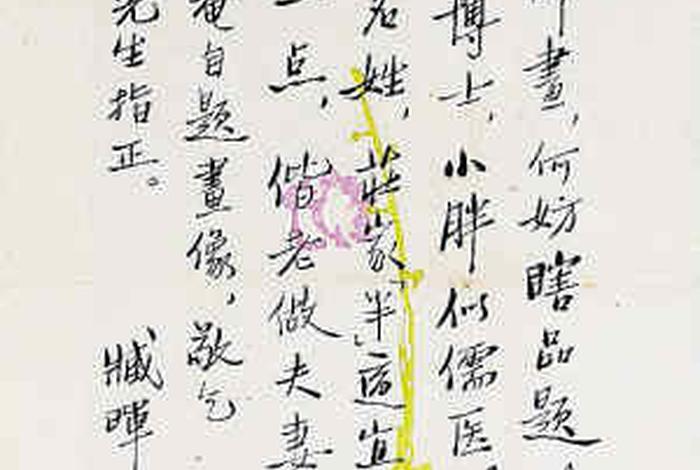 畫，何妨瞎品题，
博士，小胖似儒医，
名姓，莊家「半」适宜
点，偕老做夫妻
菴自题畫像，敬乞
先生指正。 臧暉